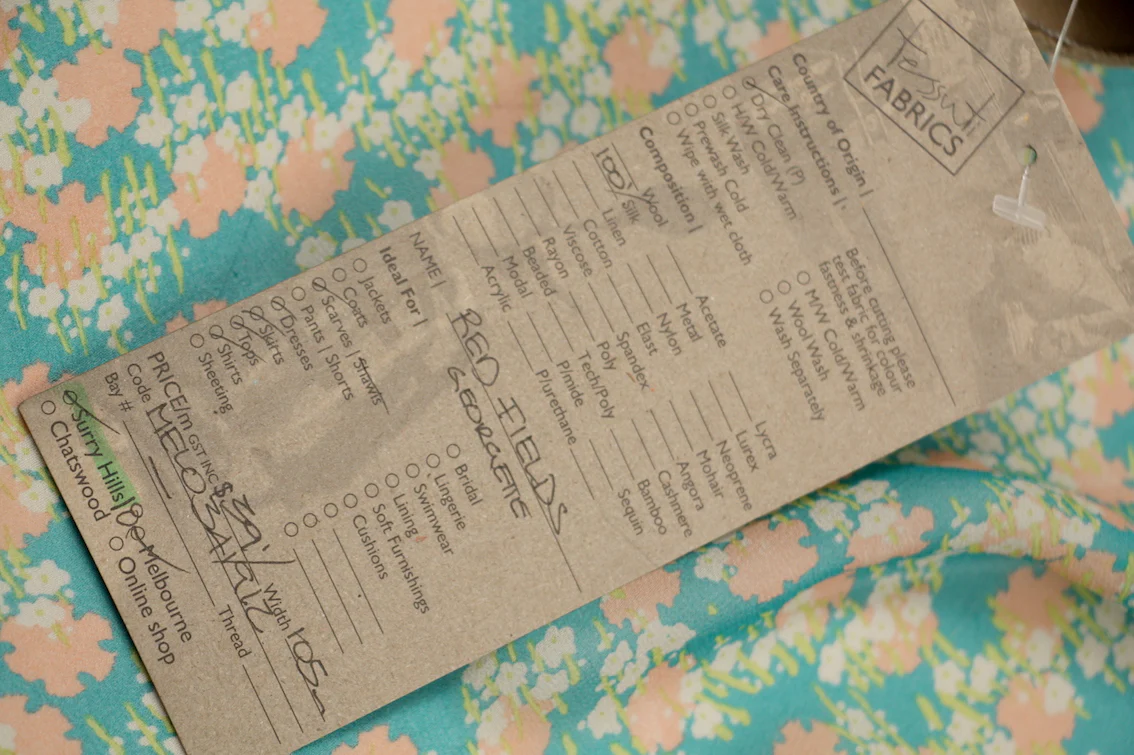 Tessuti
FABRICS
Country of Origin |
Care Instructions |
Dry Clean (P)
H/W Cold/Warm
Silk Wash
Prewash Cold
Wipe with wet cloth
Before cutting please
test fabric for colour
fastness & shrinkage
M/W Cold/Warm
Wool Wash
Wash Separately
Composition |
Wool
100% Silk
Linen
Cotton
Viscose
Rayon
Beaded
Modal
Acrylic
Acetate
Metal
Nylon
Elast
Spandex
Poly
Tech/Poly
P/mide
P/urethane
Lycra
Lurex
Neoprene
Mohair
Angora
Cashmere
Bamboo
Sequin
NAME | RED FIELDS
GEORGETTE
Ideal For |
Jackets
Coats
Scarves | Shawls
Pants | Shorts
Dresses
Skirts
Tops
Shirts
Sheeting
Bridal
Lingerie
Swimwear
Lining
Soft Furnishings
Cushions
PRICE/m GST INC $39 Width 105
Code
Bay # Thread
Surry Hills Melbourne
Chatswood Online shop